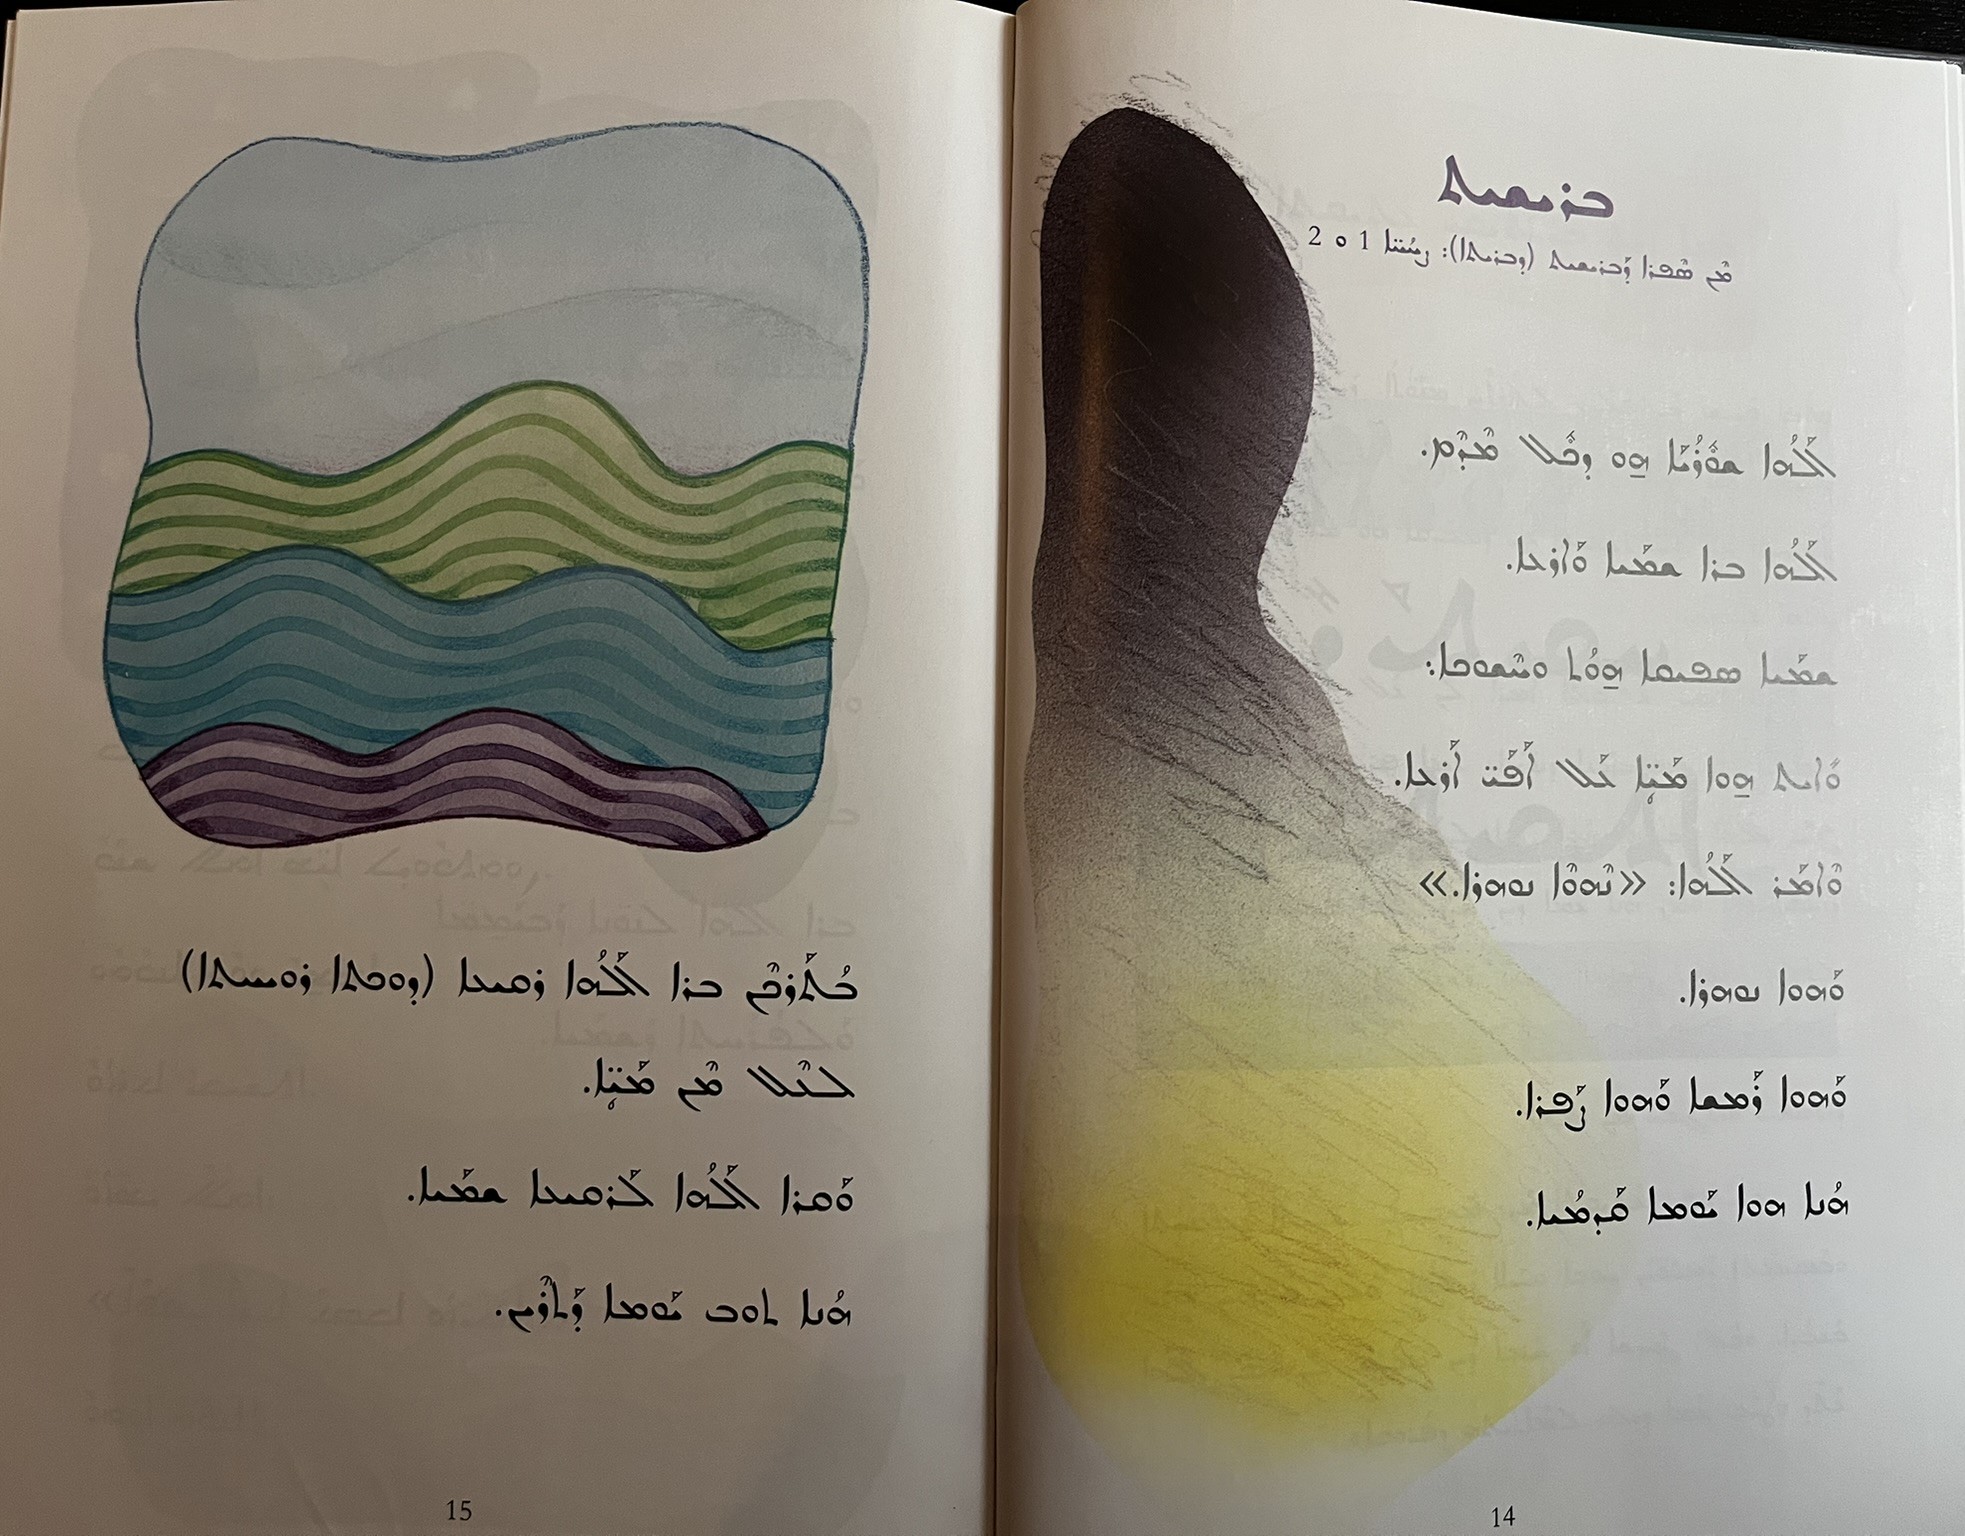 ܒܪܝܫܝܬ
ܡܶܢ ܣܶܦܪܐ ܕܰܒܪܝܫܝܬ (ܕܒܪܝܬܐ): ܨܚ̈ܚܐ 1 ܘ 2
ܐܰܠܳܗܐ ܫܘܽܪܳܝܰܐ ܗ̱ܘ ܕܟܽܠ ܡܶܕܶܡ.
ܐܰܠܳܗܐ ܒܪܐ ܫܡܰܝܐ ܘܰܐܪܥܐ.
ܫܡܰܝܐ ܣܦܝܩܐ ܗ̱ܘܳܬ ܘܚܶܫܘܟܐ:
ܘܰܐܝܬ ܗ̱ܘܐ ܡܰܝ̈ܳܐ ܥܰܠ ܐܰܦܰܝ̈ ܐܰܪܥܐ.
ܘܶܐܡܰܪ ܐܰܠܳܗܐ: «ܢܶܗܘܶܐ ܢܘܗܪܐ.»
ܘܰܗܘܐ ܢܘܗܪܐ.
ܘܰܗܘܐ ܪܰܡܫܐ ܘܰܗܘܐ ܨܰܦܪܐ.
ܗܳܢܐ ܗܘܐ ܝܰܘܡܐ ܩܰܕܡܳܝܐ.
14
ܒܳܬܰܪܟܶܢ ܒܪܐ ܐܰܠܳܗܐ ܪܩܝܥܐ (ܕܘܟܬܐ ܪܘܝܚܬܐ)
ܠܥܶܠ ܡܶܢ ܡܰܝ̈ܳܐ.
ܘܰܩܪܐ ܐܰܠܳܗܐ ܠܰܪܩܝܥܐ ܫܡܰܝܐ.
ܗܳܢܐ ܬܘܒ ܝܰܘܡܐ ܕܰܬܪܶܝܢ.
15